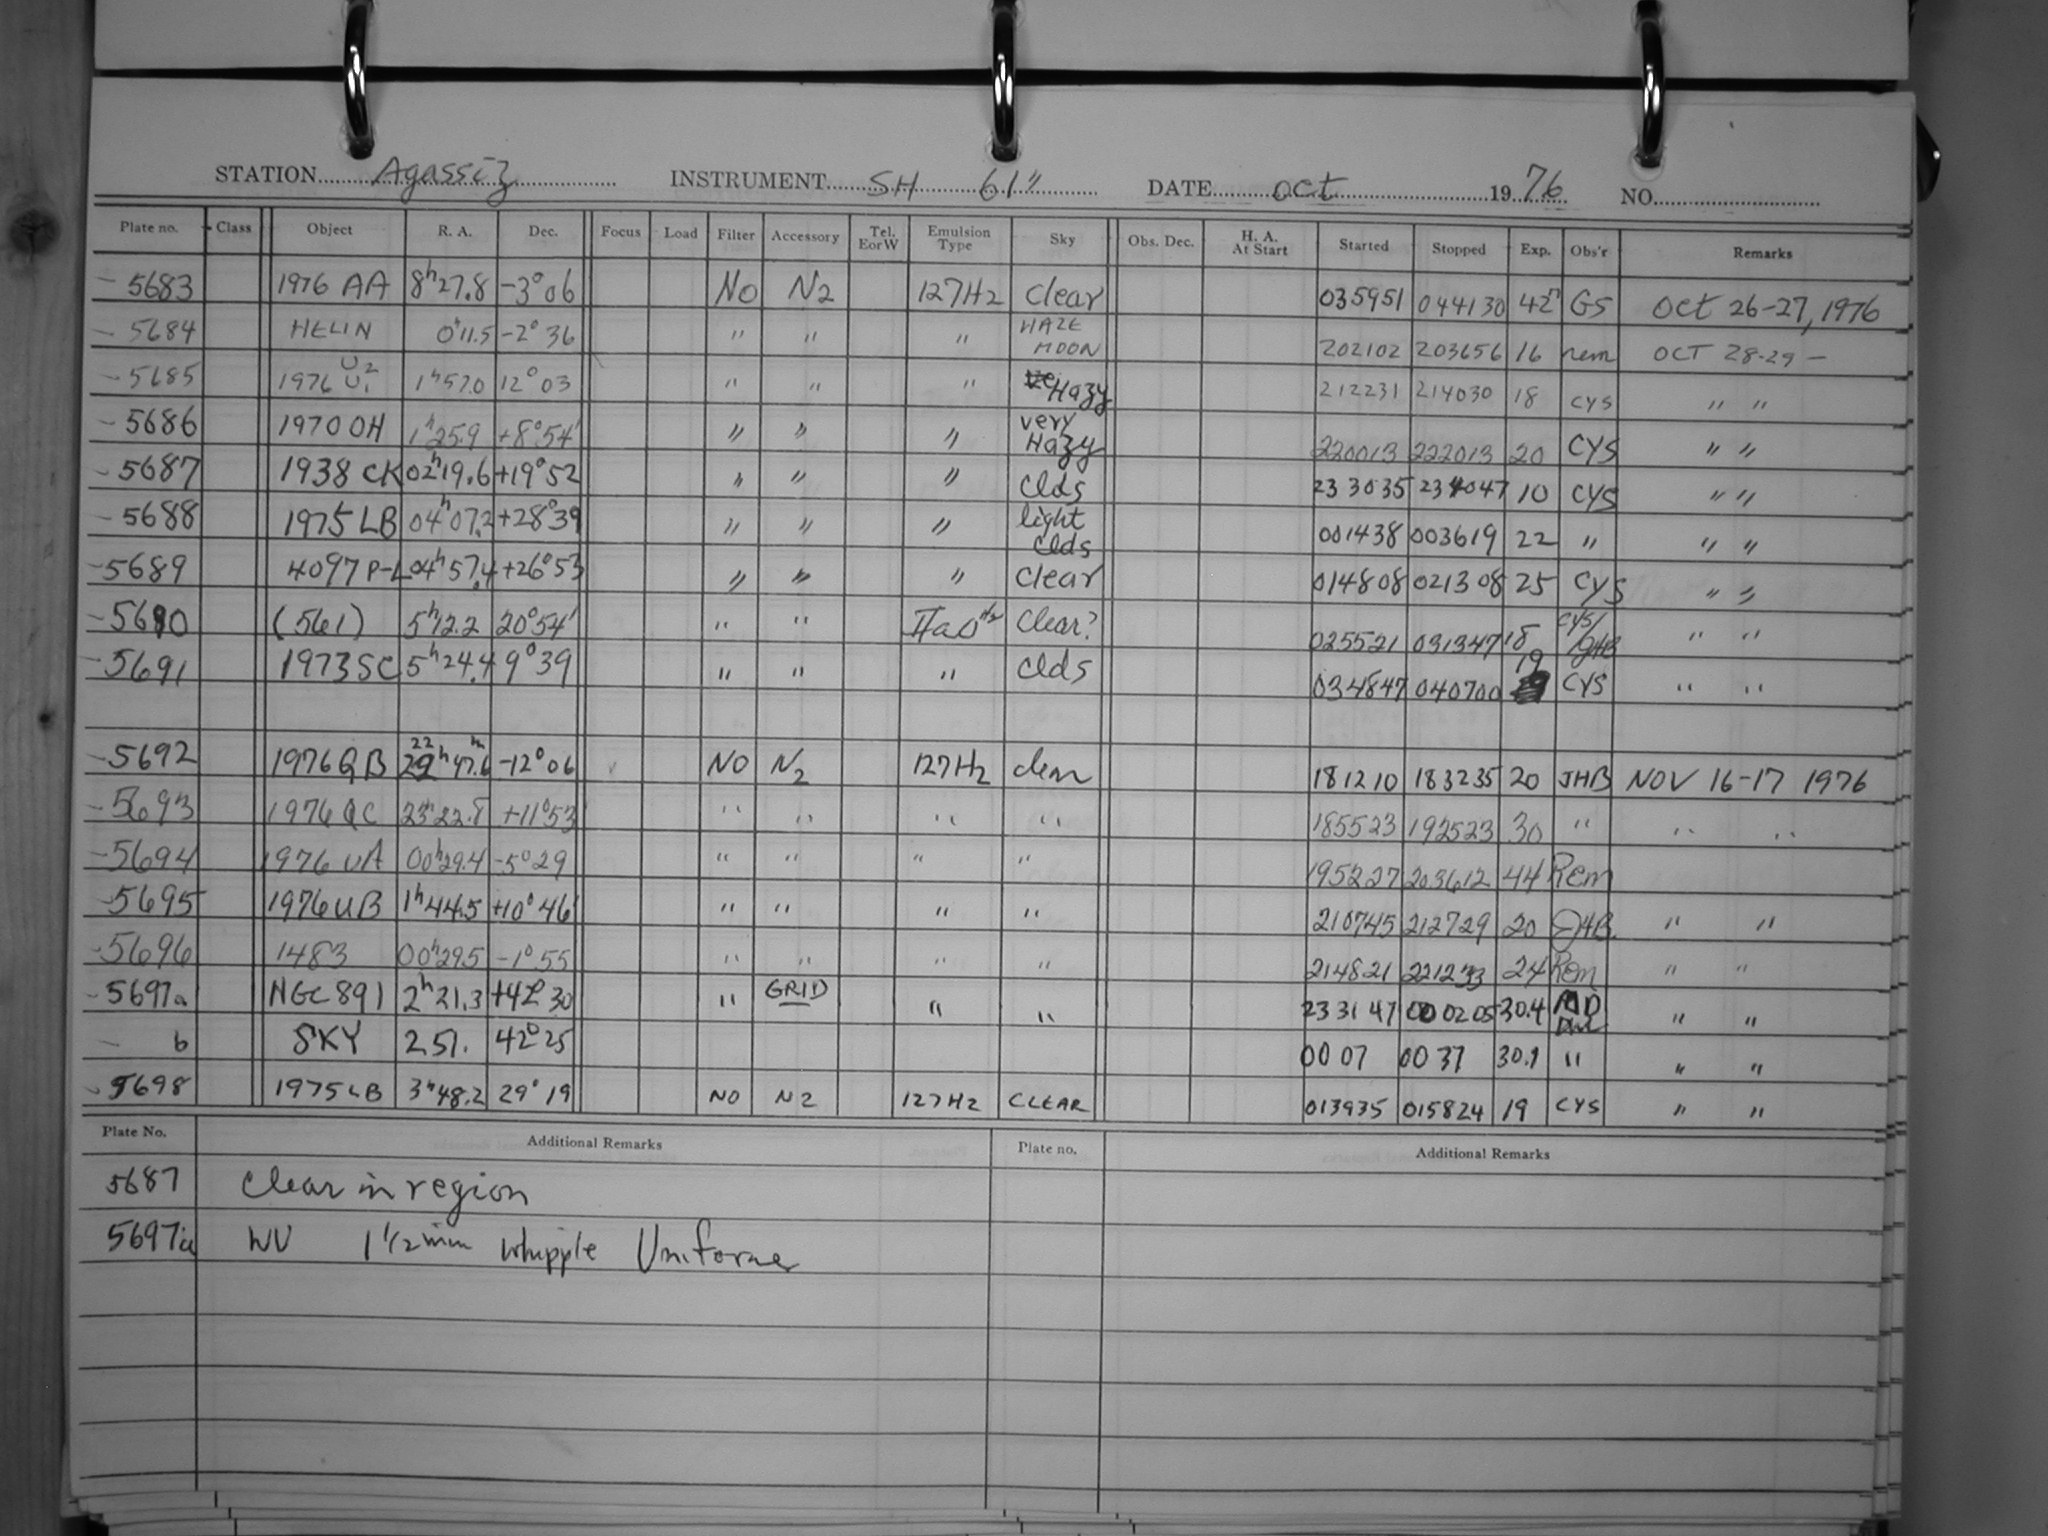 STATION Agassiz INSTRUMENT SH 61" DATE Oct 1976 NO.
Plate no. Class Object R. A. Dec. Focus Load Filter Accessory Tel. E or W Emulsion Type Sky Obs. Dec. H. A. At Start Started Stopped Exp. Obs'r Remarks
- 5683 1976 AA 8h27.8 -3°06 NO N2 127H2 Clear 035951 044130 42 GS Oct 26-27, 1976
- 5684 HELIN 0h11.5 -2°36 " " " HAZE MOON 202102 203656 16 rem OCT 28-29 -
- 5685 1976 U2 U1 1h57.0 12°03 " " " Hazy 212231 214030 18 CYS " "
- 5686 1970 OH 1h25.9 +8°54' " " " very Hazy 220013 222013 20 CYS " "
- 5687 1938 CK 02h19.6 +19°52 " " " Clds 233035 234047 10 CYS " "
- 5688 1975 LB 04h07.2 +28°39 " " " light Clds 001438 003619 22 " " "
- 5689 4097 P-L 04h57.4 +26°53 " " " Clear 014808 021308 25 CYS " "
- 5690 (561) 5h12.2 20°54' " " IIaO H2 Clear? 025521 031347 18 CYS/JHB " "
- 5691 1973 SC 5h24.4 9°39 " " " Clds 034847 040700 19 CYS " "
- 5692 1976 QB 22h47.6m -12°06 NO N2 127H2 clear 181210 183235 20 JHB NOV 16-17 1976
- 5693 1976 QC 23h22.8 +11°53 " " " " 185523 192523 30 " " "
- 5694 1976 UA 00h29.4 -5°29 " " " " 195227 203612 44 Rem
- 5695 1976 UB 1h44.5 +10°46' " " " " 210745 212729 20 JHB " "
- 5696 1483 00h29.5 -1°55 " " " " 214821 221233 24 Rem " "
- 5697a NGC 891 2h21.3 +42°30 " GRID " " 233147 000205 30.4 " "
- b SKY 2 51. 42°25 00 07 00 37 30.1 " " "
- 5698 1975 LB 3h48.2 29°19 NO N2 127H2 CLEAR 013935 015824 19 CYS " "
Plate No. Additional Remarks Plate no. Additional Remarks
5687 Clear in region
5697a WU 1 1/2 mm Whipple Uniforme